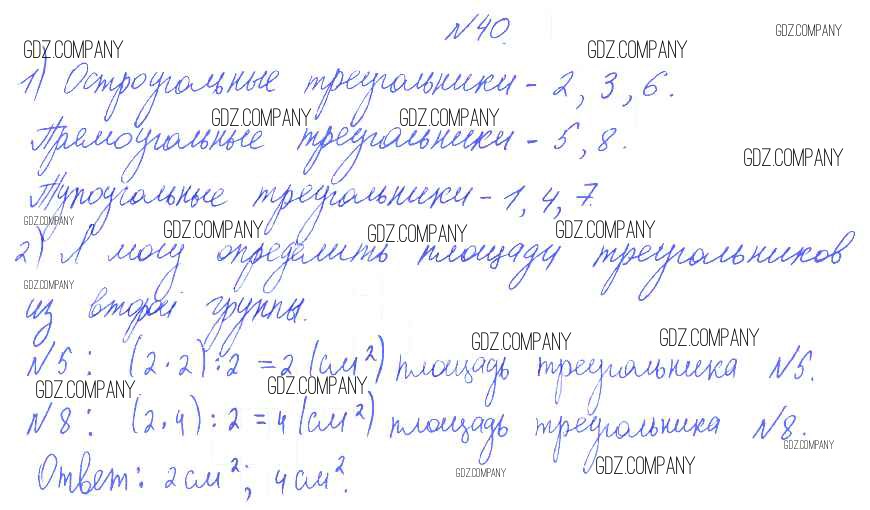 №40.
GDZ.COMPANY
GDZ.COMPANY GDZ.COMPANY
1) Остроугольные треугольники - 2, 3, 6.
GDZ.COMPANY GDZ.COMPANY
Прямоугольные треугольники - 5, 8.
GDZ.COMPANY
Тупоугольные треугольники - 1, 4, 7.
GDZ.COMPANY GDZ.COMPANY GDZ.COMPANY GDZ.COMPANY
2) Я могу определить площади треугольников
GDZ.COMPANY
из второй группы.
GDZ.COMPANY GDZ.COMPANY
№5: (2·2):2 = 2 (см²) площадь треугольника №5.
GDZ.COMPANY GDZ.COMPANY
№8: (2·4):2 = 4 (см²) площадь треугольника №8.
GDZ.COMPANY
Ответ: 2 см²; 4 см².
GDZ.COMPANY GDZ.COMPANY